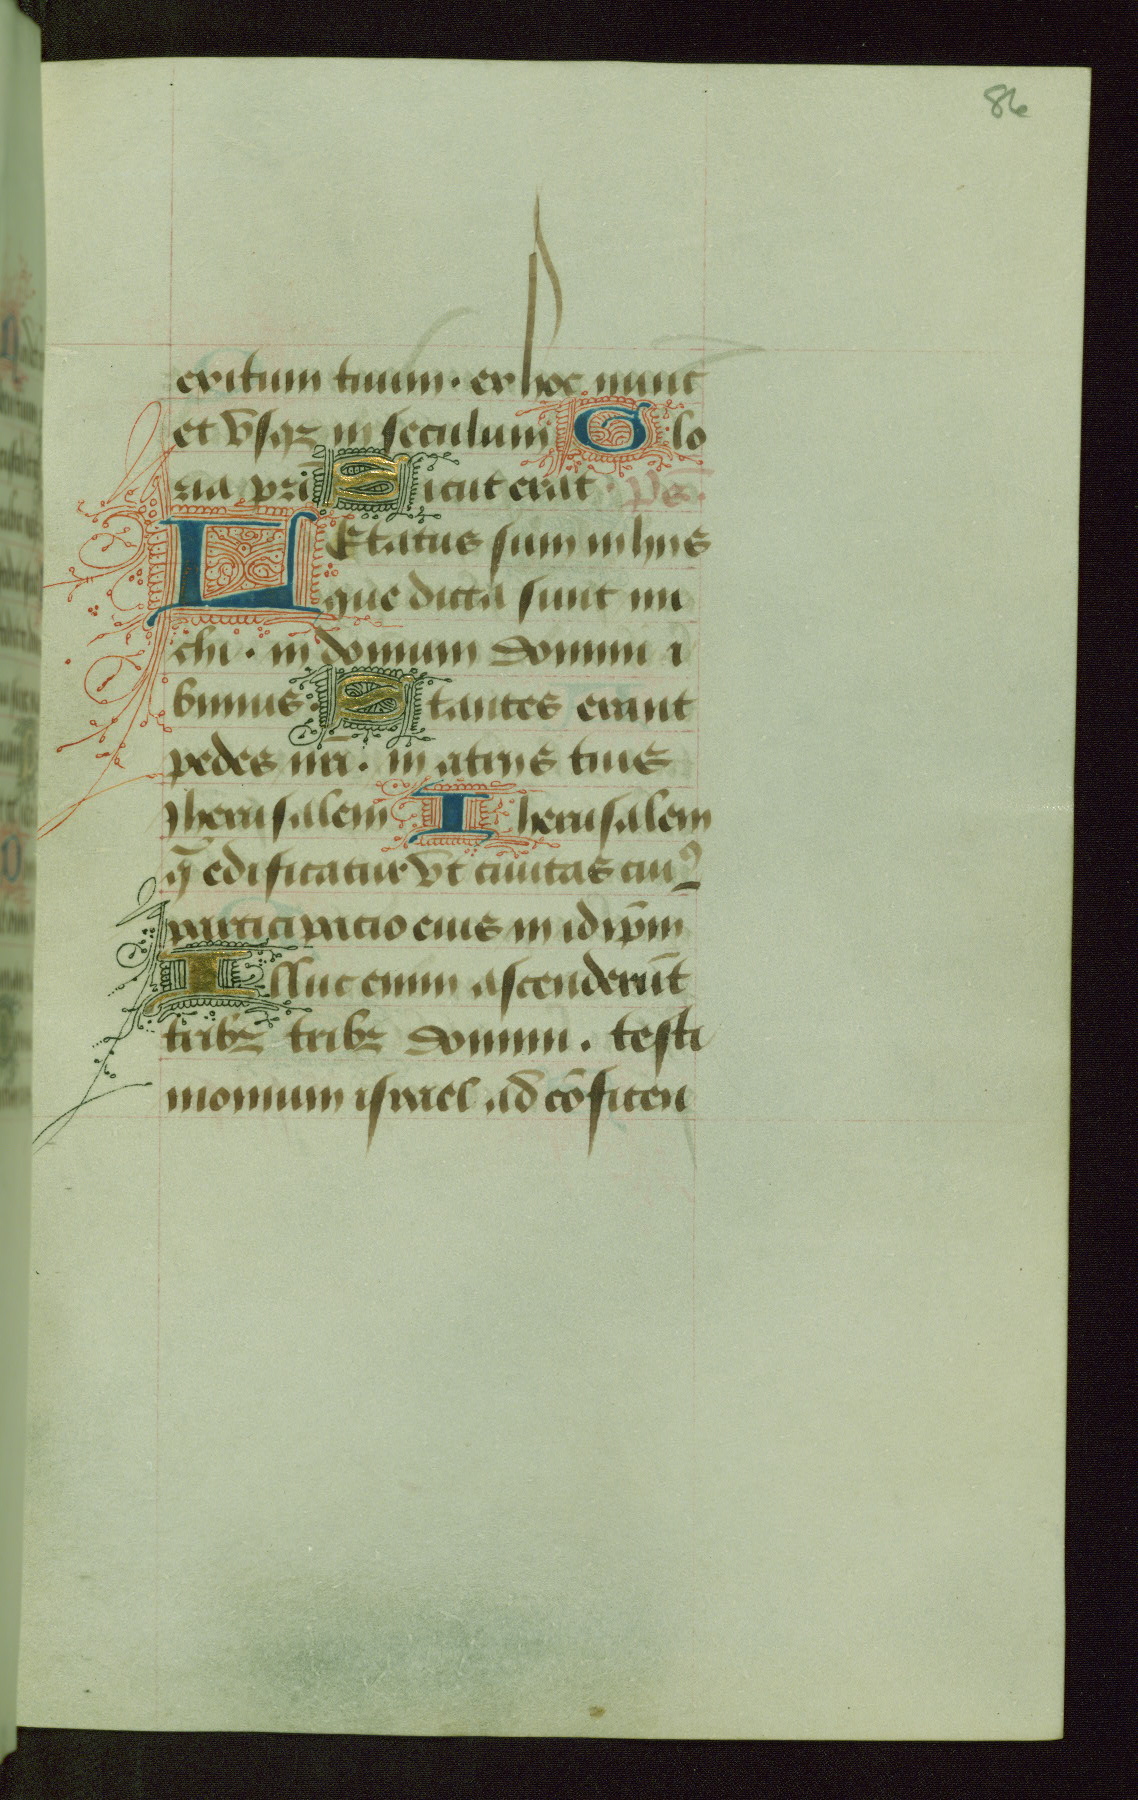 86
exitum tuum. ex hoc nunc
et vsqz in seculum Glo
ria pri Sicut erat. ps.
LEtatus sum in hiis
que dicta sunt mi
chi. in domum domini i
bimus. Stantes erant
pedes nri. in atriis tuis
Iherusalem Iherusalem
q̄ edificatur vt ciuitas cuiꝰ
participacio eius in idip̄m
Illuc enim ascenderūt
tribꝫ tribꝫ domini. testi
monium israel ad cōfiten